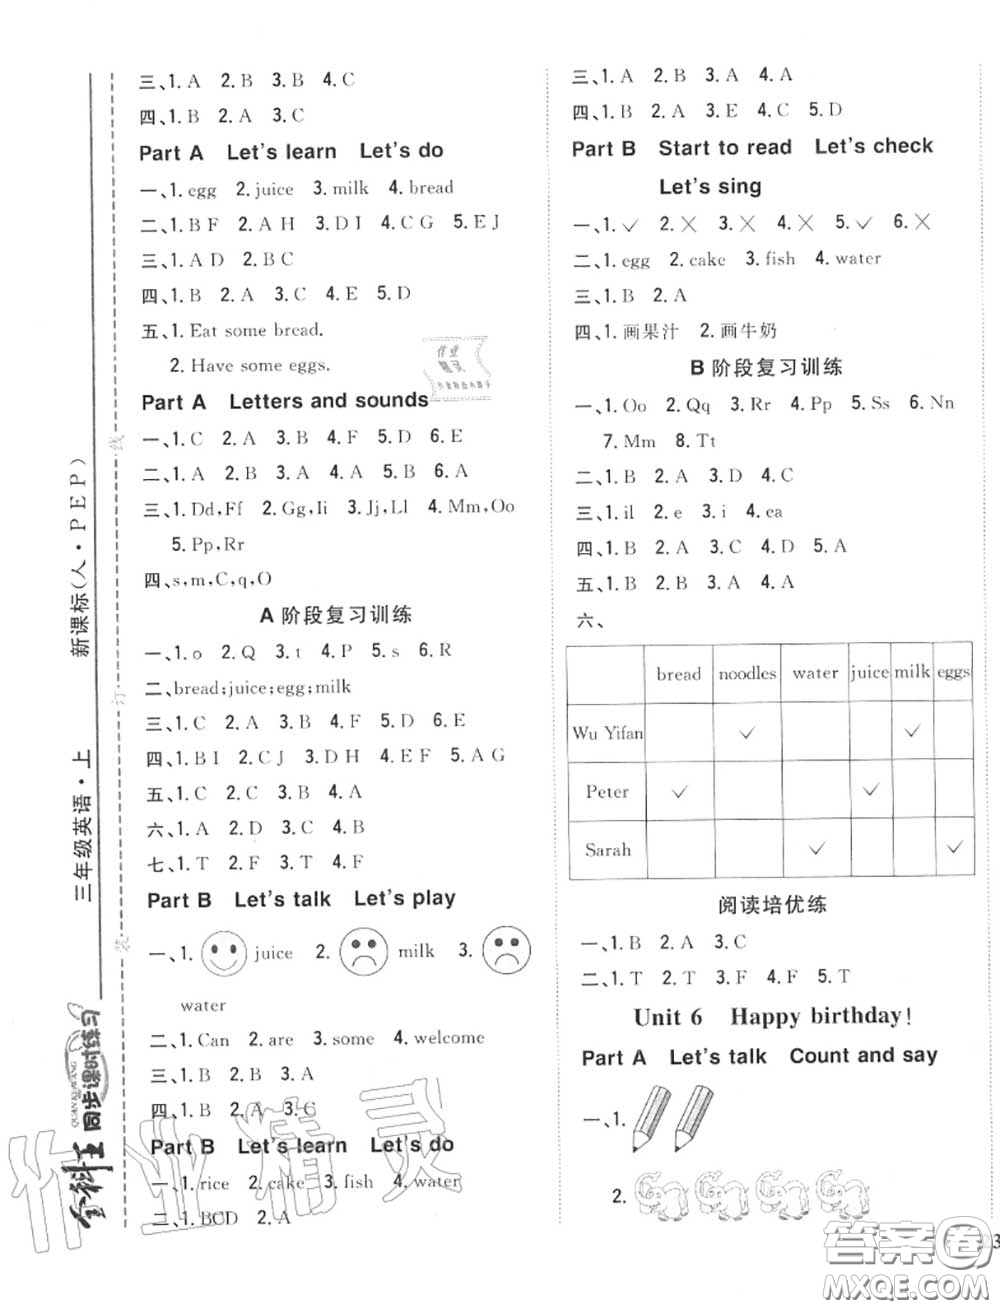 三、1. A 2. B 3. B 4. C
四、1. B 2. A 3. C
Part A Let's learn Let's do
一、1. egg 2. juice 3. milk 4. bread
二、1. B F 2. A H 3. D I 4. C G 5. E J
三、1. A D 2. B C
四、1. B 2. A 3. C 4. E 5. D
五、1. Eat some bread.
2. Have some eggs.
Part A Letters and sounds
一、1. C 2. A 3. B 4. F 5. D 6. E
二、1. A 2. B 3. A 4. A 5. B 6. A
三、1. Dd,Ff 2. Gg,Ii 3. Jj,Ll 4. Mm,Oo
5. Pp,Rr
四、s,m,C,q,O
A 阶段复习训练
一、1. o 2. Q 3. t 4. P 5. s 6. R
二、bread;juice;egg;milk
三、1. C 2. A 3. B 4. F 5. D 6. E
四、1. B I 2. C J 3. D H 4. E F 5. A G
五、1. C 2. C 3. B 4. A
六、1. A 2. D 3. C 4. B
七、1. T 2. F 3. T 4. F
Part B Let's talk Let's play
一、1. juice 2. milk 3.
water
二、1. Can 2. are 3. some 4. welcome
三、1. B 2. B 3. A
四、1. B 2. A 3. C
Part B Let's learn Let's do
一、1. rice 2. cake 3. fish 4. water
二、1. BCD 2. A
三、1. A 2. B 3. A 4. A
四、1. B 2. A 3. E 4. C 5. D
Part B Start to read Let's check
Let's sing
一、1. ✓ 2. ✕ 3. ✕ 4. ✕ 5. ✓ 6. ✕
二、1. egg 2. cake 3. fish 4. water
三、1. B 2. A
四、1. 画果汁 2. 画牛奶
B 阶段复习训练
一、1. Oo 2. Qq 3. Rr 4. Pp 5. Ss 6. Nn
7. Mm 8. Tt
二、1. B 2. A 3. D 4. C
三、1. il 2. e 3. i 4. ea
四、1. B 2. A 3. C 4. D 5. A
五、1. B 2. B 3. A 4. A
六、
bread noodles water juice milk eggs
Wu Yifan ✓ ✓
Peter ✓ ✓
Sarah ✓ ✓
阅读培优练
一、1. B 2. A 3. C
二、1. T 2. T 3. F 4. F 5. T
Unit 6 Happy birthday!
Part A Let's talk Count and say
一、1.
2.
三年级英语·上 新课标(人·PEP)
装 订 线
全科王 同步课时练习
QUAN KE WANG
作业精灵
作业
精灵
答案卷
MXQE.COM
3